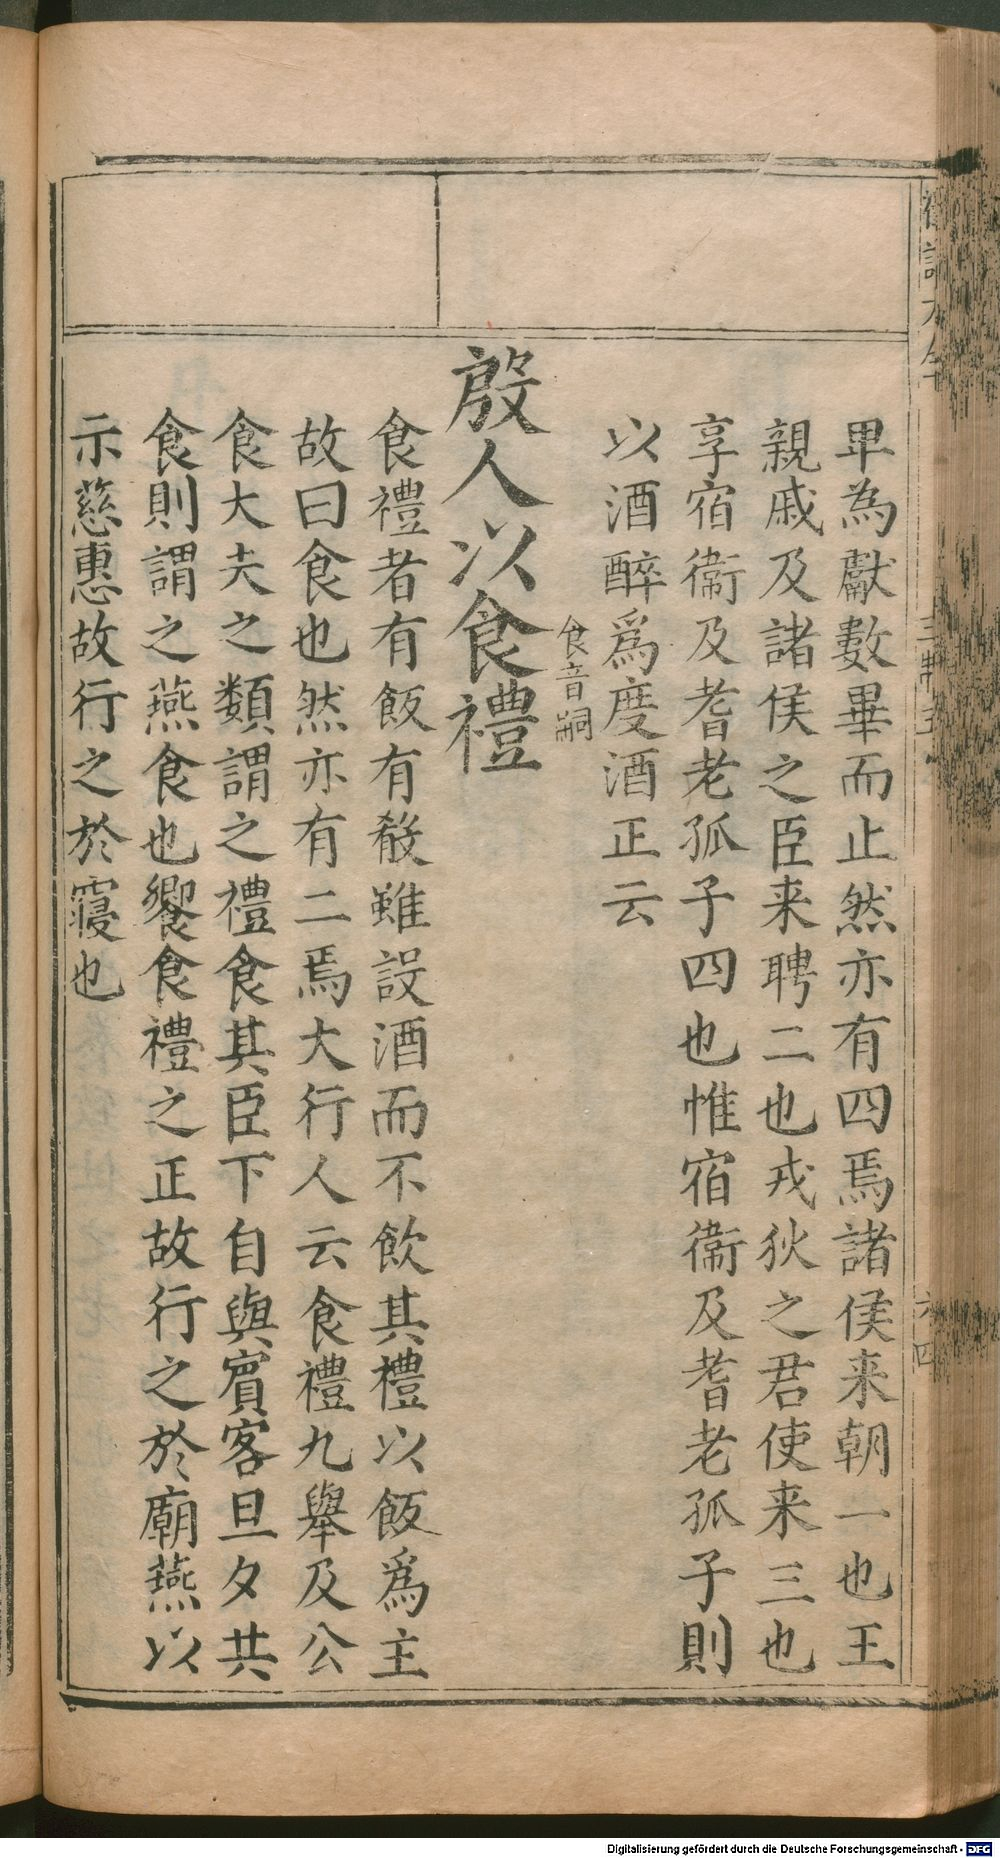 卑為獻數畢而止然亦有四焉諸侯来朝一也王
親戚及諸侯之臣来聘二也戎狄之君使来三也
享宿衞及耆老孤子四也惟宿衞及耆老孤子則
以酒醉爲度酒正云
殷人以食禮
食音嗣
食禮者有飯有殽雖設酒而不飲其禮以飯爲主
故曰食也然亦有二焉大行人云食禮九舉及公
食大夫之類謂之禮食其臣下自與賓客旦夕共
食則謂之燕食也饗食禮之正故行之於廟燕以
示慈惠故行之於寢也
Digitalisierung gefördert durch die Deutsche Forschungsgemeinschaft - DFG